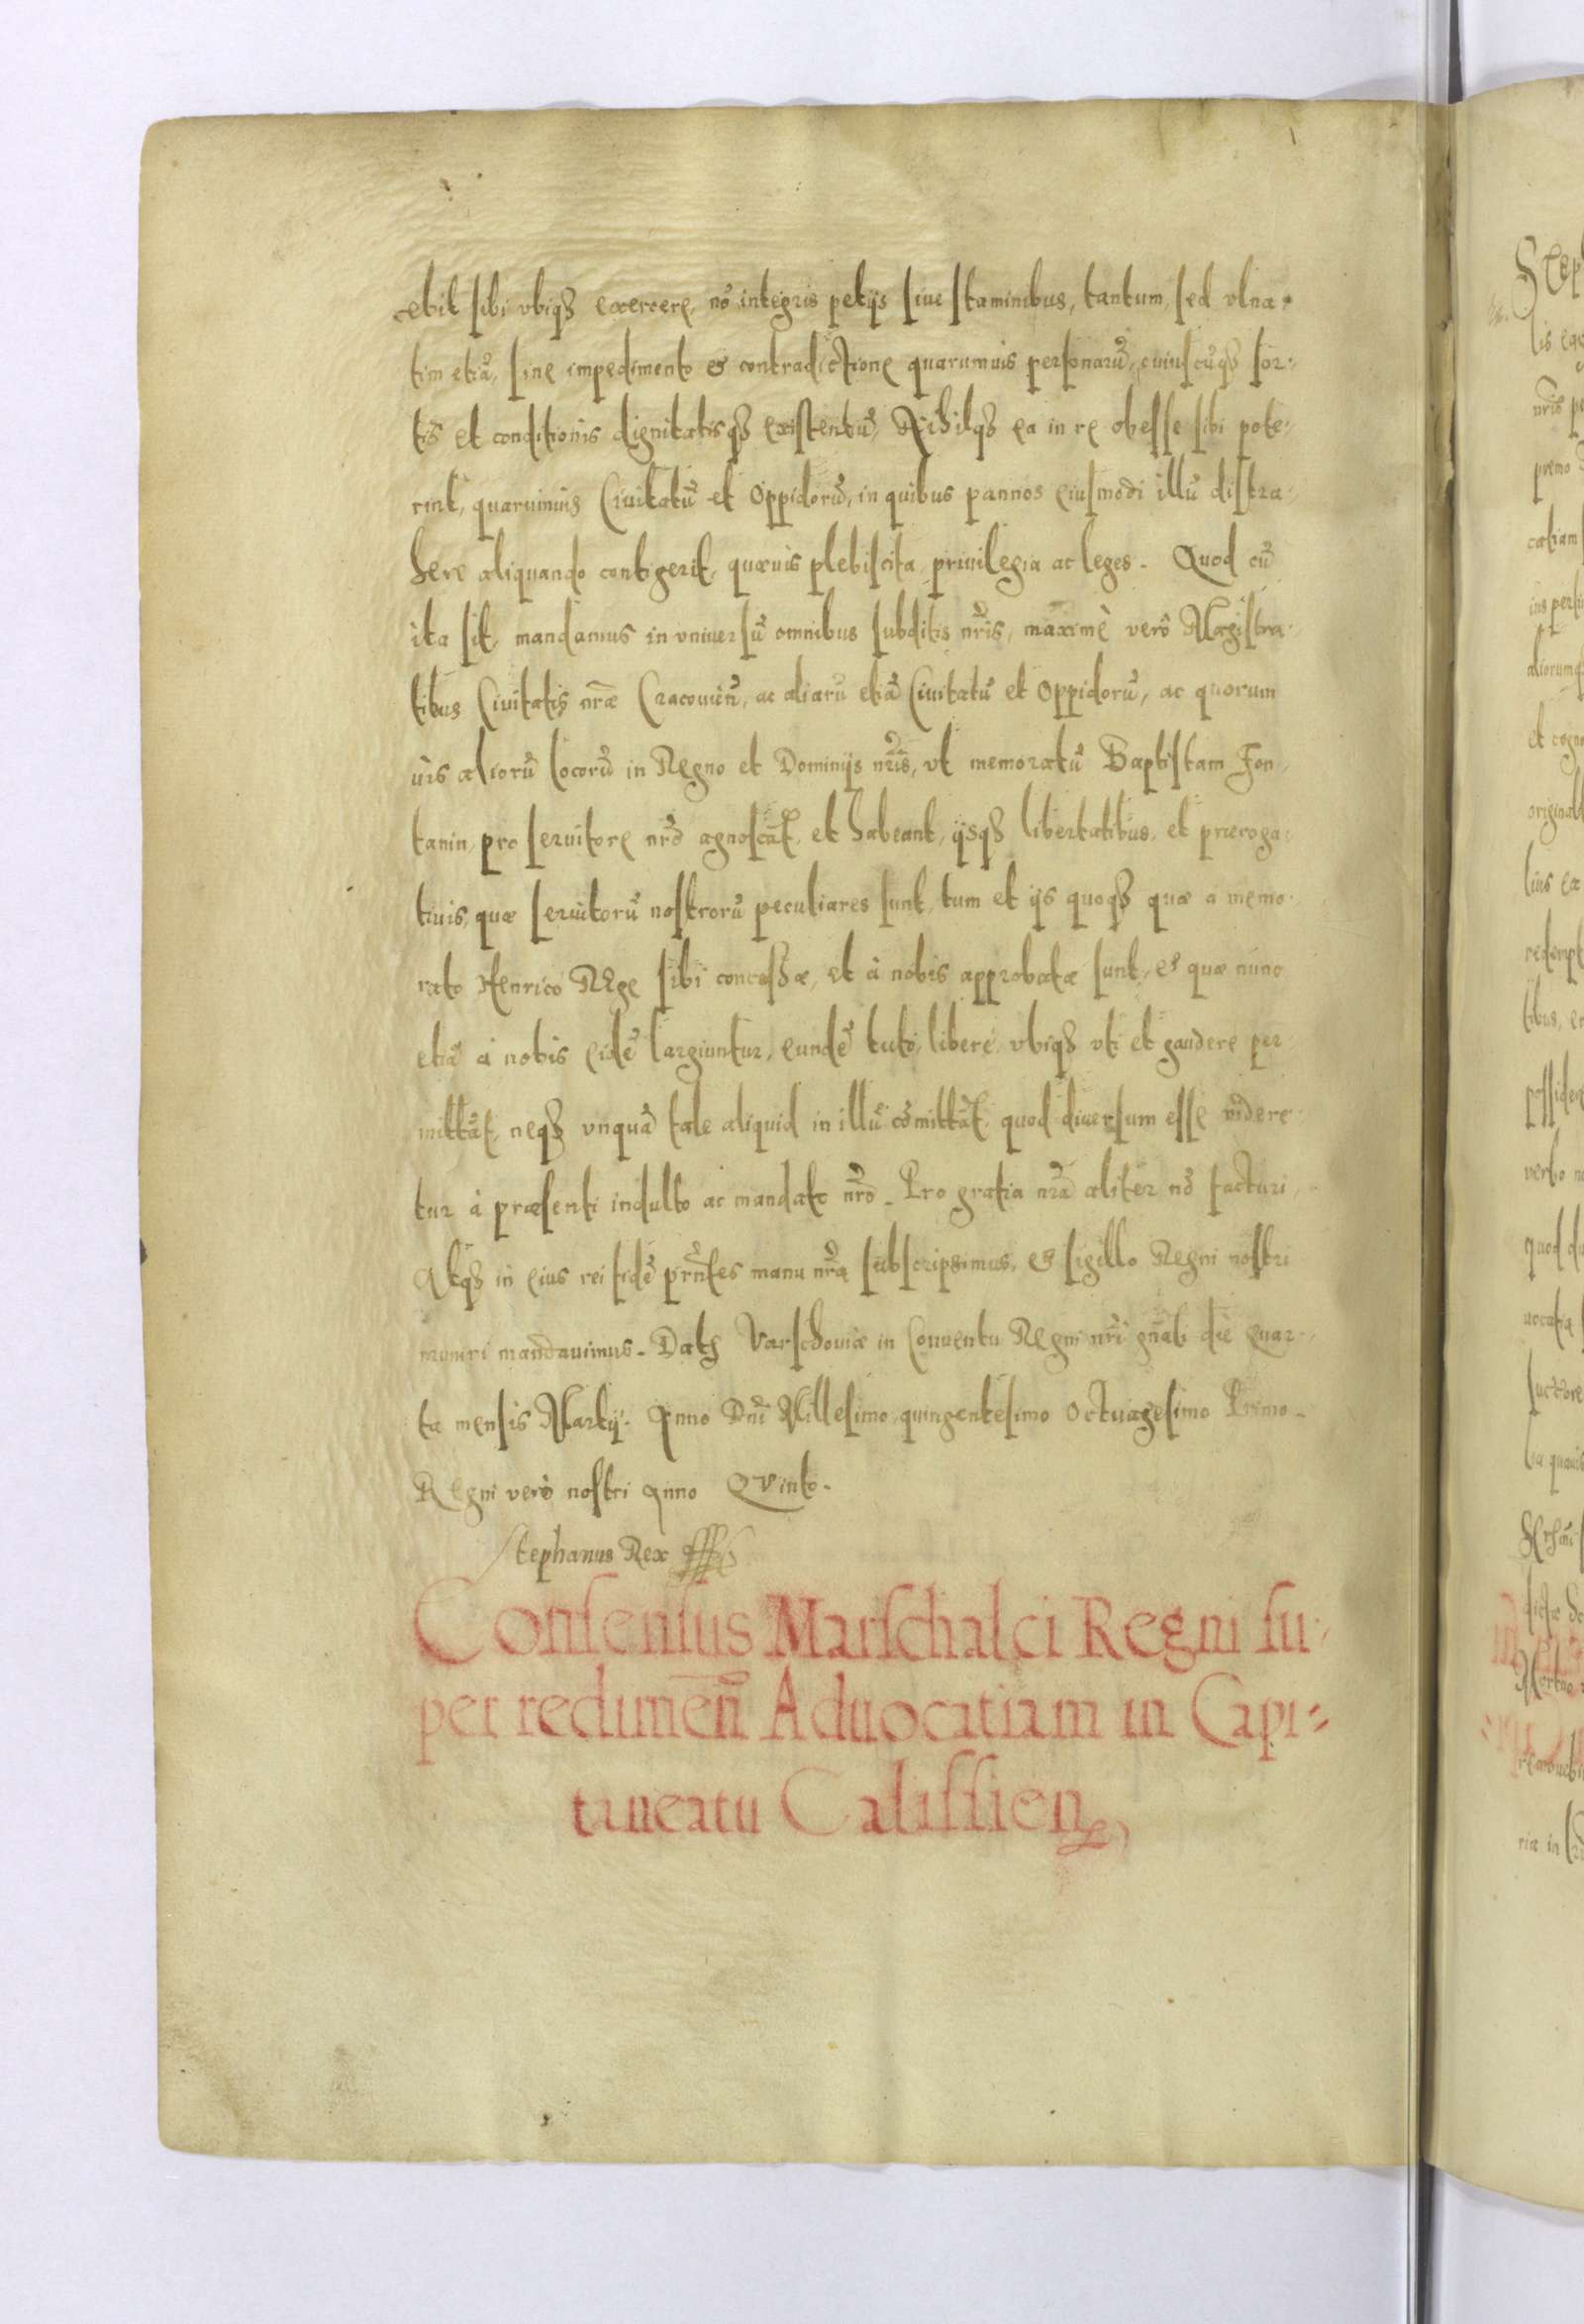 cebit sibi vbiqꝫ exercere, nō integris petijs siue staminibus, tantum, sed vlna-
tim etiā, sine impedimento & contradictione quarumuis personarū, cuiuscūqꝫ sor-
tis et conditionis dignitatisqꝫ existentiū, Nihilqꝫ ea in re obesse sibi pote-
rint, quarumuis Ciuitatū et Oppidorū, in quibus pannos eiusmodi illū distra-
here aliquando contigerit, quæuis plebiscita, priuilegia ac leges. Quod cū
ita sit, mandamus in vniuersū omnibus subditis nr̃is, maximè verò Magistra-
tibus Ciuitatis nr̃æ Cracouien̄, ac aliarū etiā Ciuitatū et Oppidorū, ac quorum
uis aliorū locorū in Regno et Dominijs nr̃is, vt memoratū Baptistam Fon-
tanin, pro seruitore nr̃o agnoscāt, et habeant, ijsqꝫ libertatibus, et præroga-
tiuis, quæ seruitorū nostrorū peculiares sunt, tum et ijs quoqꝫ quæ a memo-
rato Henrico Rege sibi concessæ, et à nobis approbatæ sunt, & quæ nunc
etiā à nobis eidē largiuntur, eundē tutò, liberè, vbiqꝫ vti et gaudere per-
mittāt, neqꝫ vnquā tale aliquid in illū cōmittāt, quod diuersum esse videre-
tur à præsenti indulto ac mandato nr̃o. Pro gratia nr̃a aliter nō facturi,
Atqꝫ in eius rei fidē pr̃ntes manu nr̃a subscripsimus, & sigillo Regni nostri
muniri mandauimus. Datꝫ Varschouiæ in Conuentu Regni nr̃i gn̄ali die quar-
ta mensis Martij. Anno Dn̄i Millesimo quingentesimo Octuagesimo Primo.
Regni verò nostri Anno Qvinto.
Stephanus Rex
Consensus Marschalci Regni su-
per redimen̄ Aduocatiam in Capi-
taneatu Calissien